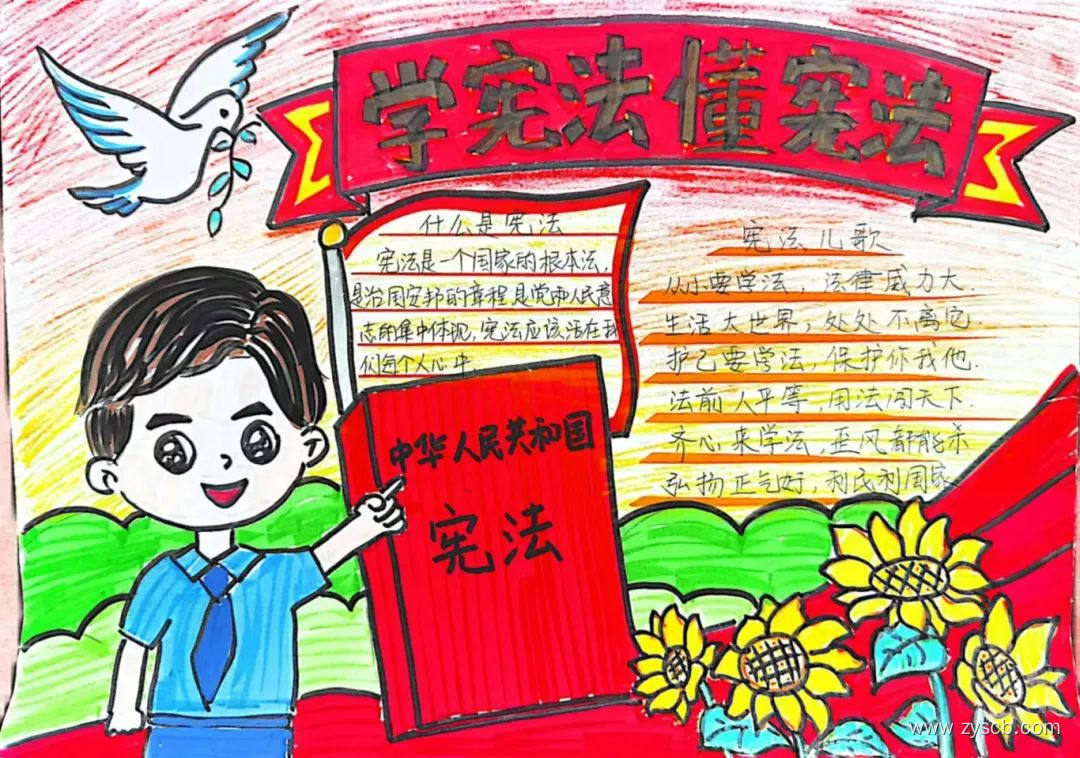 学宪法 懂宪法
什么是宪法
宪法是一个国家的根本法,
是治国安邦的章程,是党和人民意
志的集中体现,宪法应该活在我
们每个人心中.
宪法儿歌
从小要学法, 法律威力大.
生活大世界, 处处不离它.
护己要学法, 保护你我他.
法前人平等, 用法闯天下.
齐心来学法, 歪风都能杀
弘扬正气好, 利民利国家
中华人民共和国
宪法
www.zyscb.com